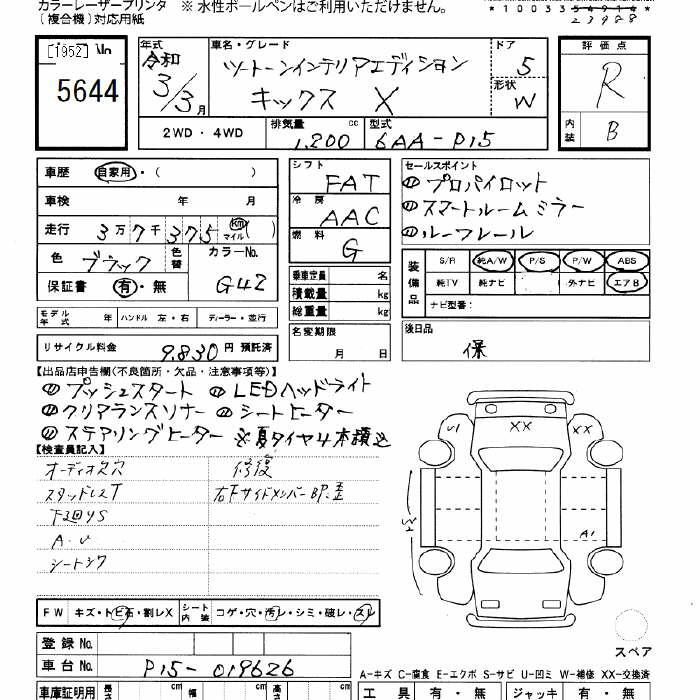 カラーレーザープリンタ ※ 水性ボールペンはご利用いただけません。
(複合機)対応用紙
*10033 54914
23988
[1952] No
5644
年式 令和 3/3月
車名・グレード ツートーンインテリアエディション
キックス X
ドア 5
形状 W
2WD・4WD
排気量 1,200 cc
型式 6AA-P15
評価点 R
内装 B
車歴 自家用・( )
車検 年 月
走行 3万7千375 km マイル ( )
色 ブラック 色替 カラーNo. G42
保証書 有・無
シフト FAT
冷房 AAC
燃料 G
乗車定員 名
積載量 kg
総重量 kg
名変期限 月 日
セールスポイント
プロパイロット
スマートルームミラー
ルーフレール
装備品 S/R 純A/W P/S P/W ABS
純TV 純ナビ 外ナビ エアB
ナビ型番:
後日品
保
モデル年式 年 ハンドル 左・右 ディーラー・並行
リサイクル料金 9,830円 預託済
【出品店申告欄(不良箇所・欠品・注意事項等)】
プッシュスタート LEDヘッドライト
クリアランスソナー シートヒーター
ステアリングヒーター ※夏タイヤ4本積込
【検査員記入】
オーディオ欠穴
スタッドレスT
下廻りS
A・U
シートシワ
修復
右Fサイドメンバー BP.歪
U1 XX XX
W2
A1
スペア
FW キズ・トビ石・割レX シート内装 コゲ・穴・汚レ・シミ・破レ・スレ
登録 No.
車台 No. P15-019626
A-キズ C-腐食 E-エクボ S-サビ U-凹ミ W-補修 XX-交換済
車庫証明用 長さ cm 幅 cm 高さ cm
工具 有・無 ジャッキ 有・無